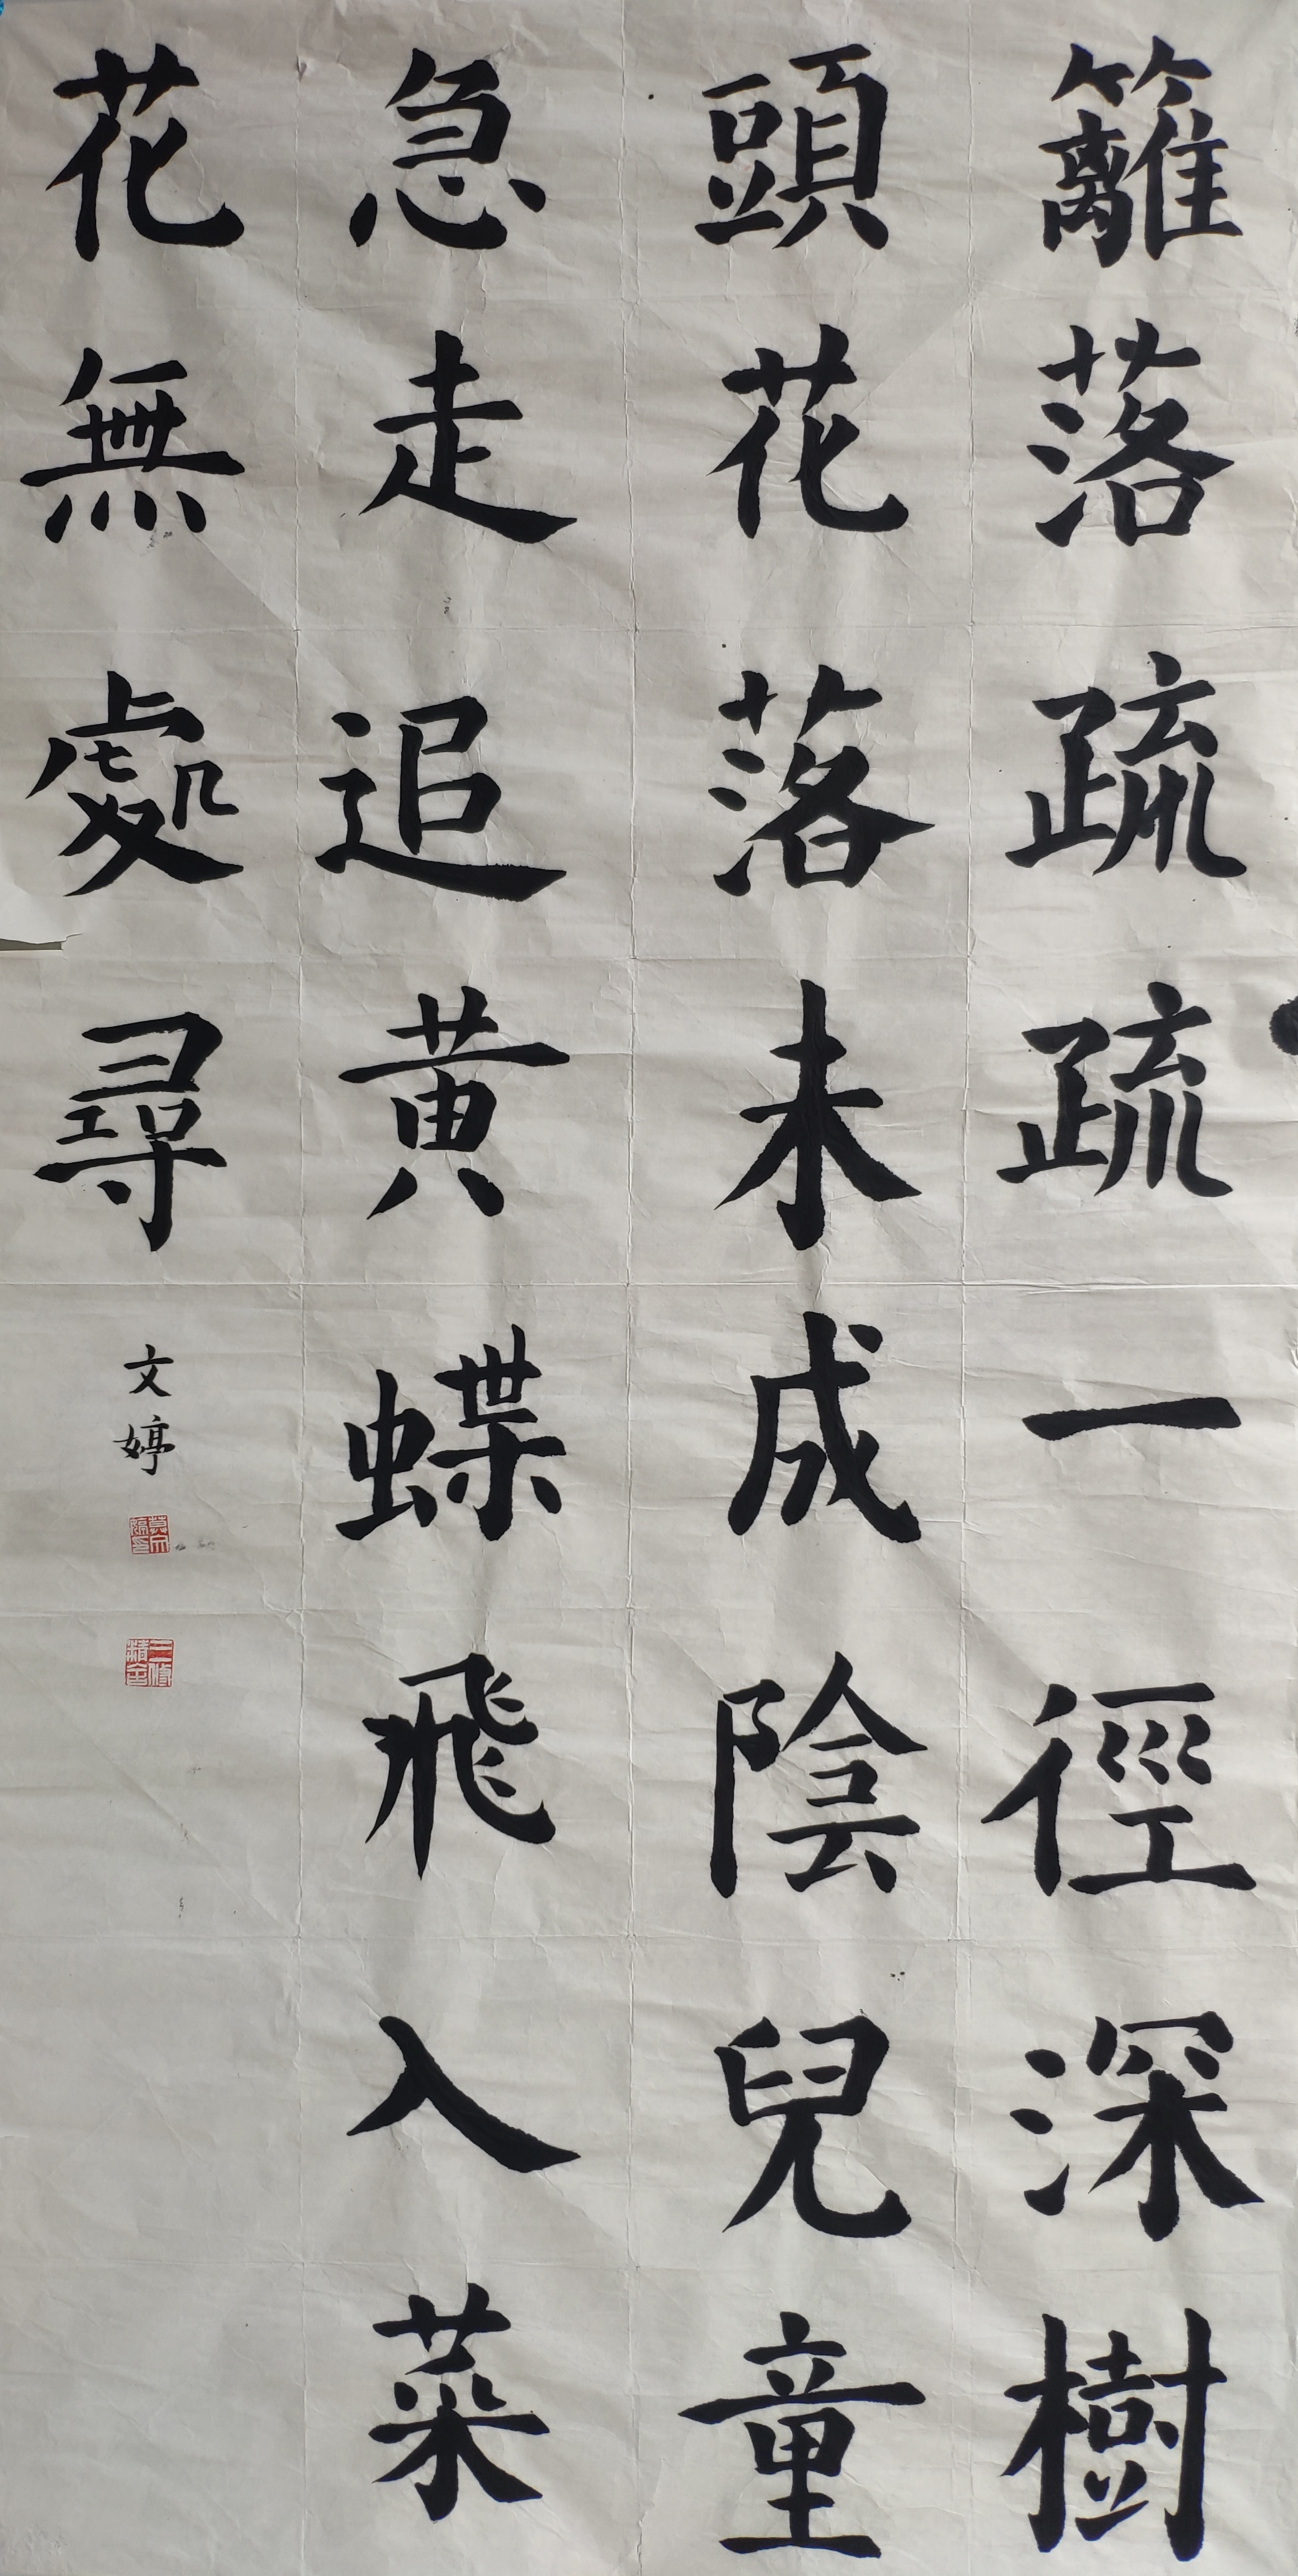 籬落疏疏一徑深樹
頭花落未成陰兒童
急走追黄蝶飛入菜
花無處尋
文婷